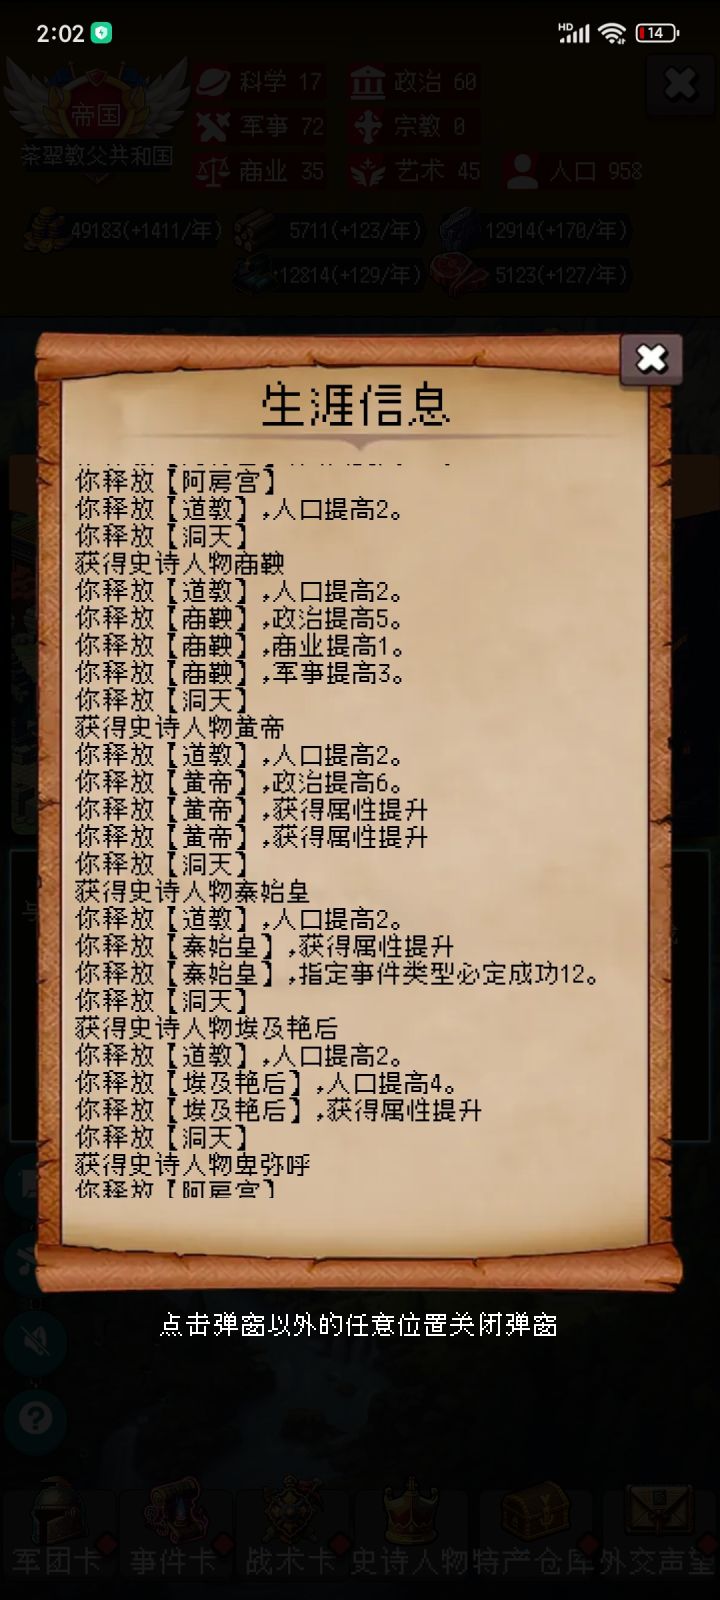 2:02
HD
14
帝国
茶翠教父共和国
科学 17
政治 60
军事 72
宗教 0
商业 35
艺术 45
人口 958
49183(+1411/年)
5711(+123/年)
12914(+170/年)
12814(+129/年)
5123(+127/年)
生涯信息
你释放【阿房宫】
你释放【道教】,人口提高2。
你释放【洞天】
获得史诗人物商鞅
你释放【道教】,人口提高2。
你释放【商鞅】,政治提高5。
你释放【商鞅】,商业提高1。
你释放【商鞅】,军事提高3。
你释放【洞天】
获得史诗人物黄帝
你释放【道教】,人口提高2。
你释放【黄帝】,政治提高6。
你释放【黄帝】,获得属性提升
你释放【黄帝】,获得属性提升
你释放【洞天】
获得史诗人物秦始皇
你释放【道教】,人口提高2。
你释放【秦始皇】,获得属性提升
你释放【秦始皇】,指定事件类型必定成功12。
你释放【洞天】
获得史诗人物埃及艳后
你释放【道教】,人口提高2。
你释放【埃及艳后】,人口提高4。
你释放【埃及艳后】,获得属性提升
你释放【洞天】
获得史诗人物卑弥呼
你释放【阿房宫】
点击弹窗以外的任意位置关闭弹窗
军团卡
事件卡
战术卡
史诗人物
特产仓库
外交声望